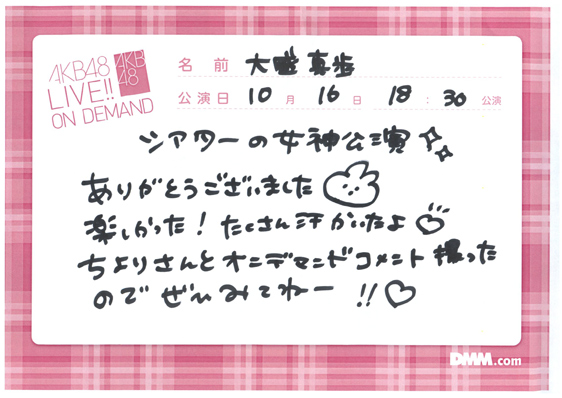 AKB48
LIVE!!
ON DEMAND
AKB
48
名前 大盛真歩
公演日 10月 16日 18:30公演
シアターの女神公演
ありがとうございました
楽しかった！たくさん汗かいたよ♡
ちよりさんとオンデマンドコメント撮った
のでぜひみてねー!!♡
DMM.com